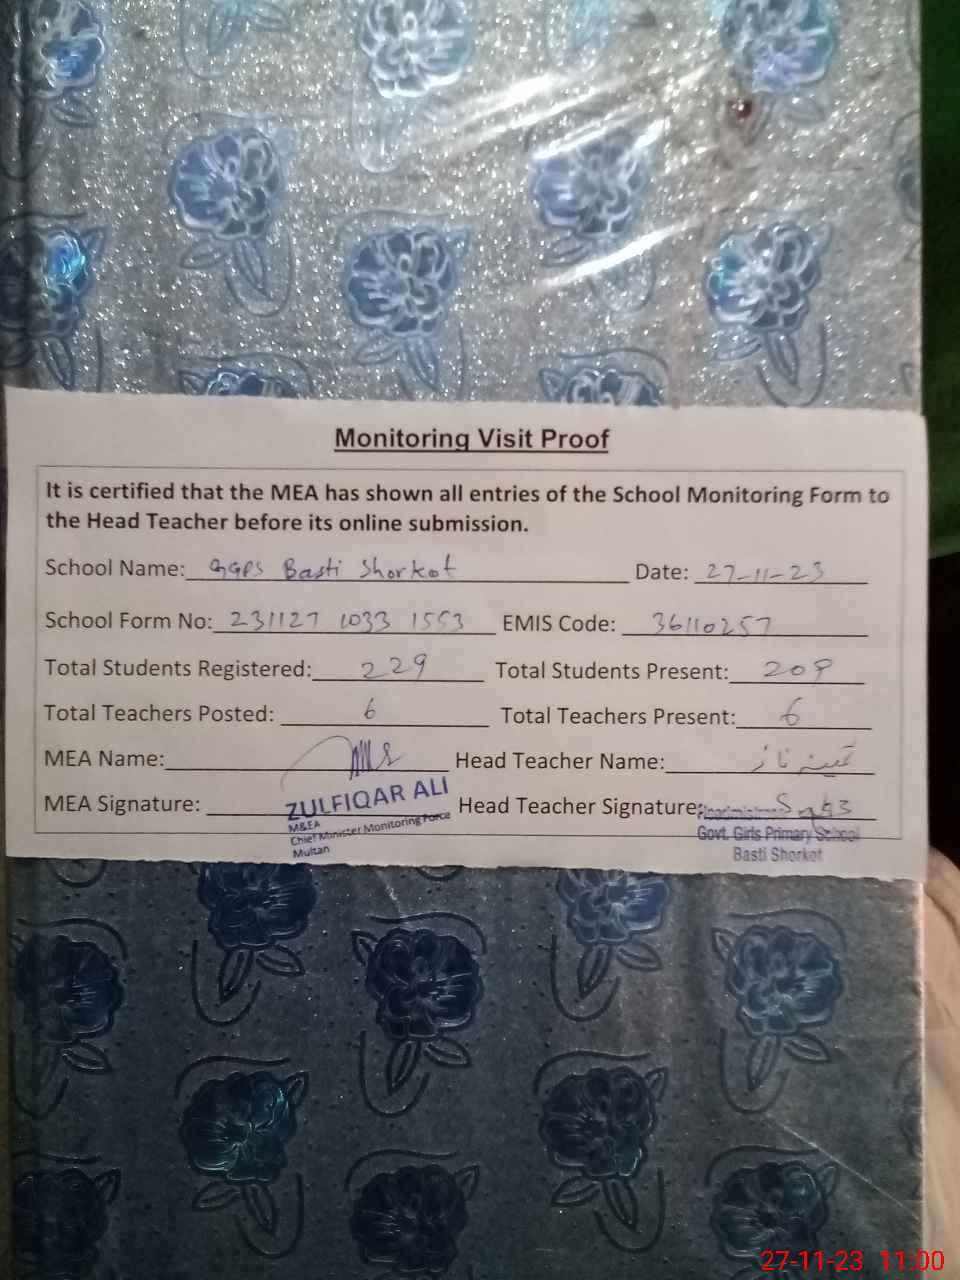 Monitoring Visit Proof
It is certified that the MEA has shown all entries of the School Monitoring Form to
the Head Teacher before its online submission.
School Name: GGPS Basti Shorkot Date: 27-11-23
School Form No: 231127 1033 1553 EMIS Code: 36110257
Total Students Registered: 229 Total Students Present: 209
Total Teachers Posted: 6 Total Teachers Present: 6
MEA Name: Head Teacher Name:
MEA Signature: ZULFIQAR ALI Head Teacher Signature:
M&EA
Chief Minister Monitoring Force
Multan
Headmistress
Govt. Girls Primary School
Basti Shorkot
27-11-23 11:00